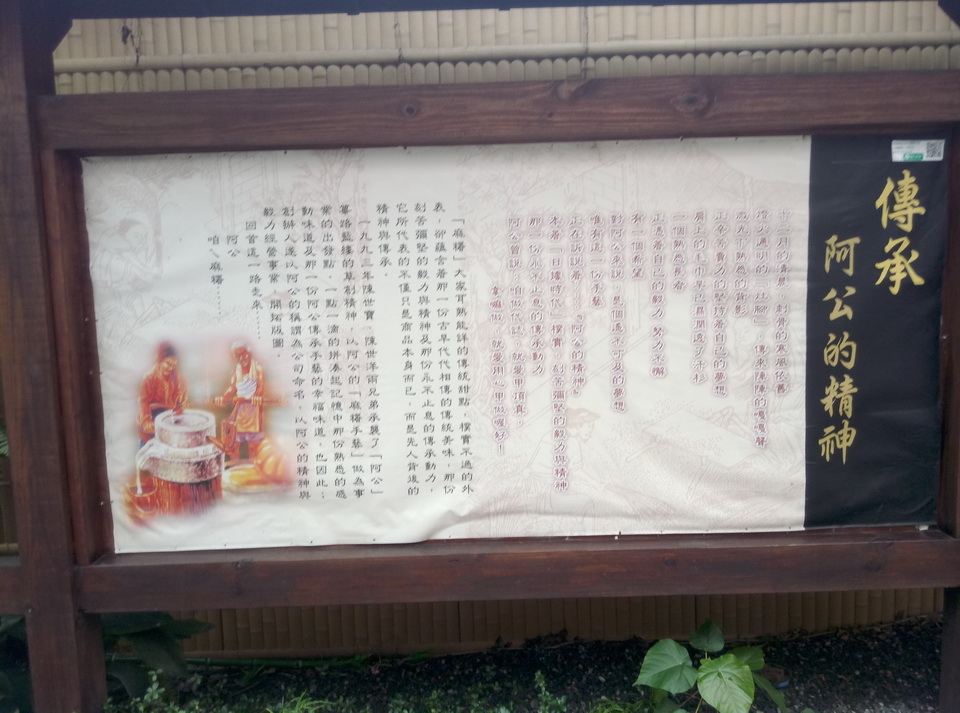 傳承
阿公的精神
十二月的清晨，刺骨的寒風依舊
燈火通明的「灶腳」，傳來陣陣的嘎嘎聲
正辛苦賣力的堅持著自己的夢想
肩上的毛巾早已貝閒透了汗水
一個熟悉長者
正憑著自己的毅力，努力不懈
有一個希望
對阿公來說，是個遙不可及的夢想
唯有這一份手藝
正在訴說著，『阿公的精神』
本著一日緯時低，樸實、刻苦彌堅的毅力與精神
那一份永不止息的傳承動力
阿公曾說，咱做低誌，就愛甲頂真。
拿嘛做，就愛用心甲做喔好！
「麻糬」大家耳熟能詳的傳統甜點，樸實不過的外
表，卻蘊含著那一份古早代代相傳的傳統美味，那份
刻苦彌堅的毅力與精神及那份永不止息的傳承動力，
它所代表的不僅只是商品本身而已，而是先人背後的
精神與傳承。
一九九三年陳世寶、陳世洋兩兄弟承襲了「阿公」
篳路藍縷的草創精神，以阿公的「麻糬手藝」做為事
業的出發點，一點一滴的拼湊起記憶中那份熟悉的感
動味道及那一份阿公傳承手藝的幸福味道，也因此；
創辦人遂以阿公的稱謂為公司命名，以阿公的精神與
毅力經營事業，開拓版圖。
回首這一路走來……
阿公
咱ㄟ麻糬……